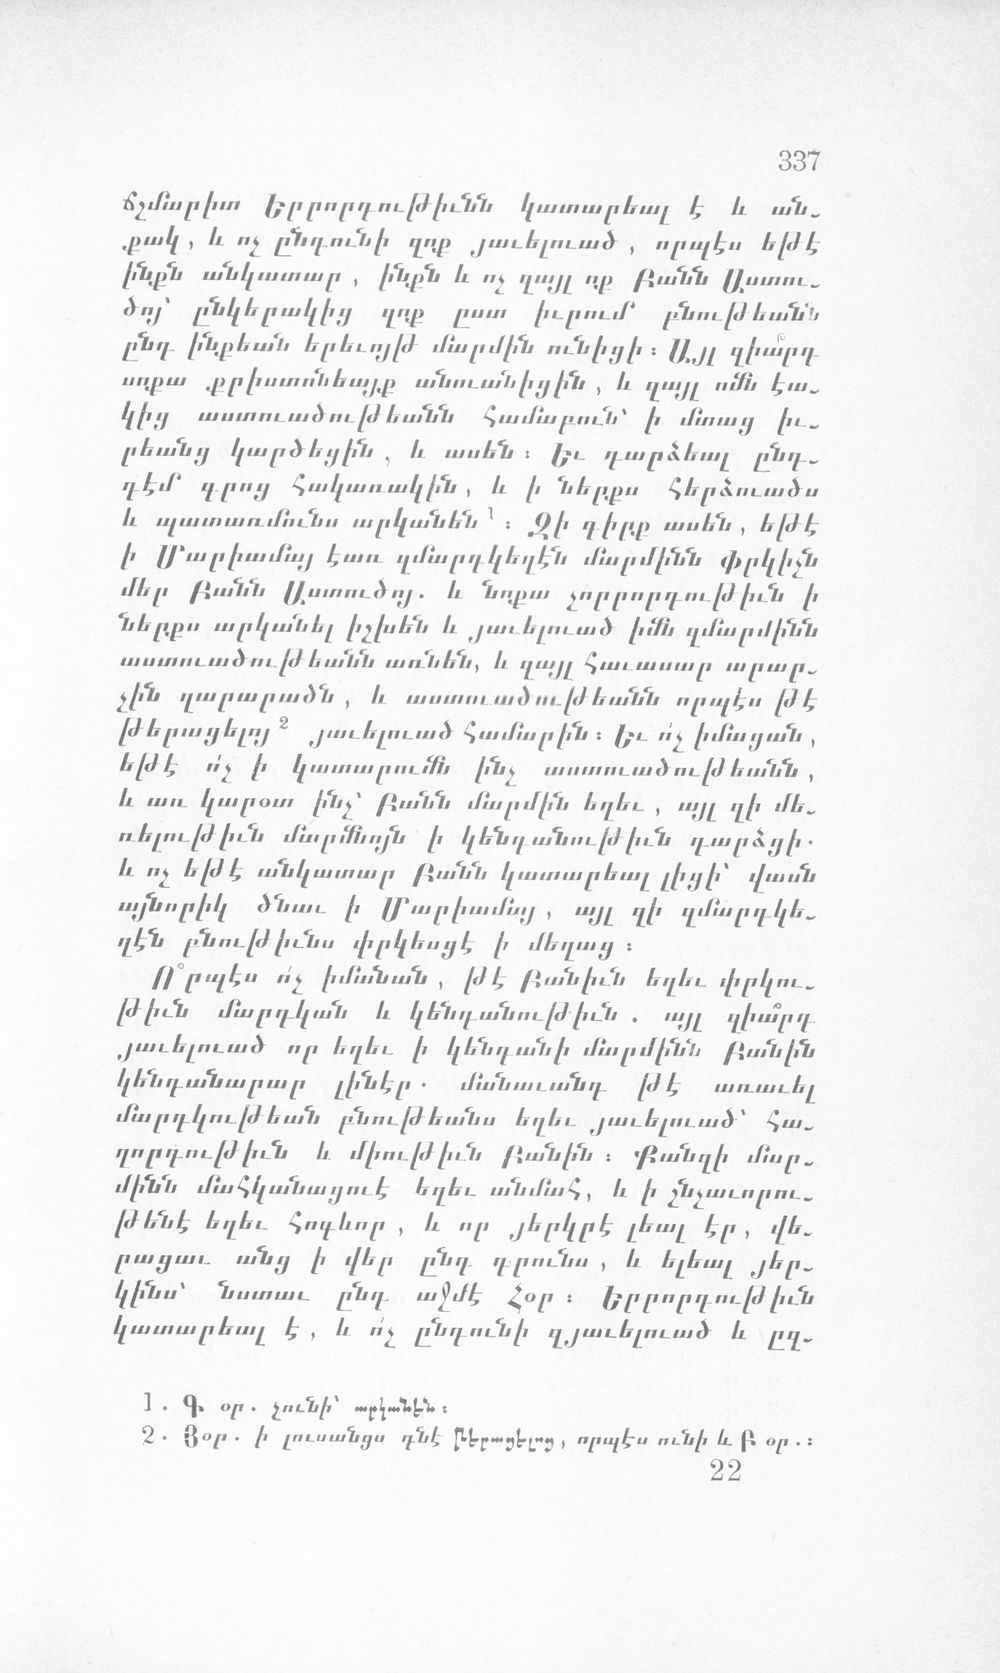 337
ճշմարիտ Երրորդութիւնն կատարեալ է և ան֊
քակ, և ոչ ընդունի զոք յաւելուած, որպէս եթէ
ինքն անկատար, ինքն և ոչ զայլ ոք Բանն Աստու֊
ծոյ՝ ընկերակից զոք ըստ իւրում բնութեանն
ընդ ինքեան երեւոյթ մարմին ունիցի։ Այլ զիա՞րդ
սոքա քրիստոնեայք անուանիցին, և զայլ ումն էա֊
կից աստուածութեանն համաբուն՝ ի մտաց իւ֊
րեանց կարծեցին, և ասեն։ Եւ դարձեալ ընդ֊
դէմ գրոց հակառակին, և ի ներքս հերձուածս
և պատառմունս արկանեն1։ Զի գիրք ասեն, եթէ
ի Մարիամայ էառ զմարդկեղէն մարմինն Փրկիչն
մեր Բանն Աստուծոյ. և նոքա չորրորդութիւն ի
ներքս արկանել իշխեն և յաւելուած իմն զմարմինն
աստուածութեանն առնեն, և զայլ հաւասար արար֊
չին զարարածն, և աստուածութեանն որպէս թէ
թերացելոյ2 յաւելուած համարին։ Եւ ո՛չ իմացան,
եթէ ո՛չ ի կատարումն ինչ աստուածութեանն,
և առ կարօտ ինչ՝ Բանն մարմին եղեւ, այլ զի մե֊
ռելութիւն մարմնոյն ի կենդանութիւն դարձցի.
և ոչ եթէ անկատար Բանն կատարեալ լիցի՝ վասն
այնորիկ ծնաւ ի Մարիամայ, այլ զի զմարդկե֊
ղէն բնութիւնս փրկեսցէ ի մեղաց։
Ո՞րպէս ո՛չ իմանան, թէ Բանիւն եղեւ փրկու֊
թիւն մարդկան և կենդանութիւն. այլ զիա՞րդ
յաւելուած որ եղեւ ի կենդանի մարմինն Բանին
կենդանարար լինէր. մանաւանդ թէ առաւել
մարդկութեան բնութեանս եղեւ յաւելուած՝ հա֊
ղորդութիւն և միութիւն Բանին։ Քանզի մար֊
մինն մահկանացուէ եղեւ անմահ, և ի շնչաւորու֊
թենէ եղեւ հոգևոր, և որ յերկրէ լեալ էր, վե֊
րացաւ անց ի վեր ընդ դրունս, և ելեալ յեր֊
կինս՝ նստաւ ընդ աջմէ Հօր։ Երրորդութիւն
կատարեալ է, և ո՛չ ընդունի զյաւելուած և ըզ֊
1. Գ օր. չունի՝ արկանեն։
2. Յօր. ի լուսանցս դնէ թերացելոց, որպէս ունի և Բ օր.։
22